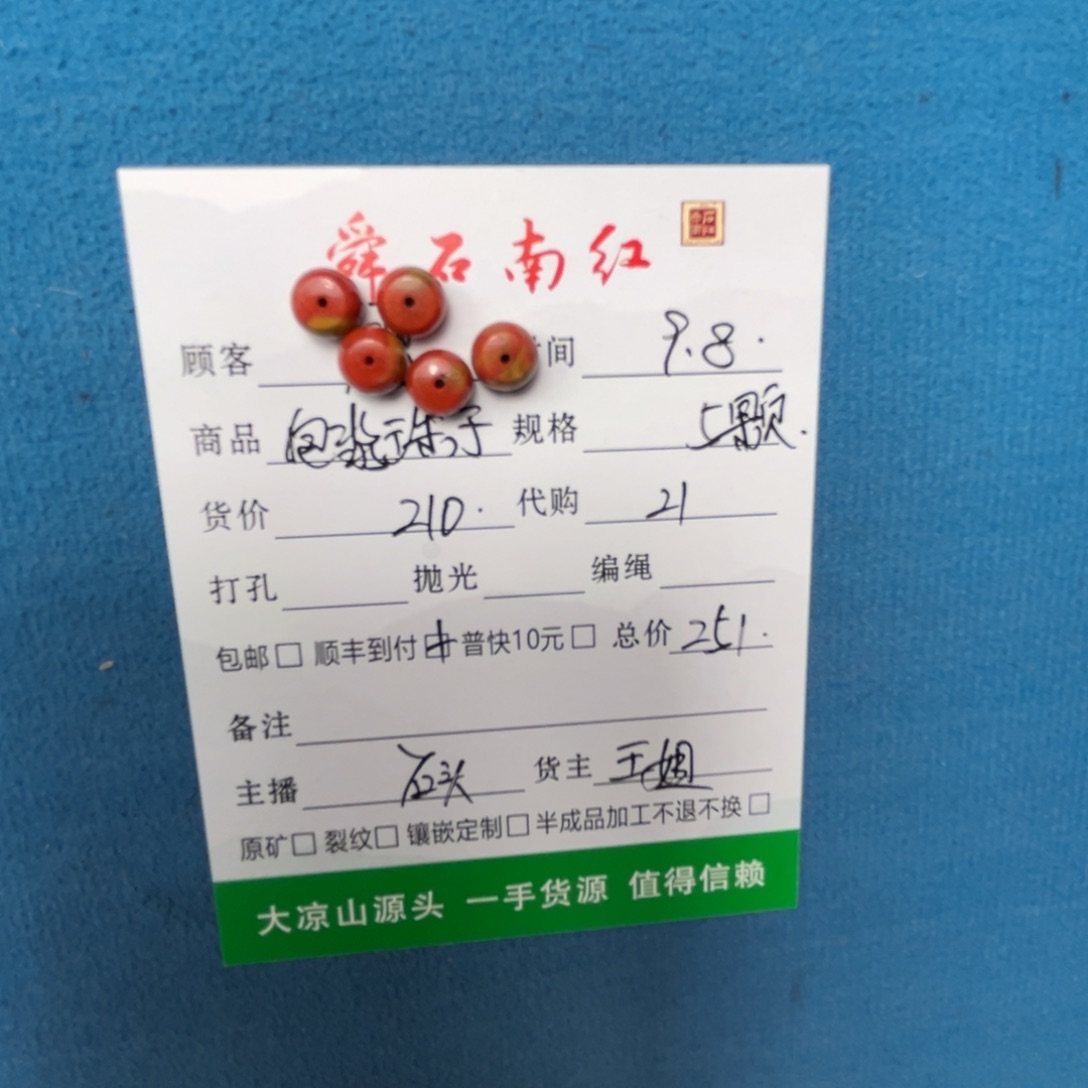 舜石南红
顾客 间 9.8.
商品 包浆珠子 规格 5颗.
货价 210. 代购 21
打孔 抛光 编绳
包邮□ 顺丰到付□ 普快10元□ 总价 251.
备注
主播 石头 货主 王姐
原矿□ 裂纹□ 镶嵌定制□ 半成品加工不退不换□
大凉山源头 一手货源 值得信赖